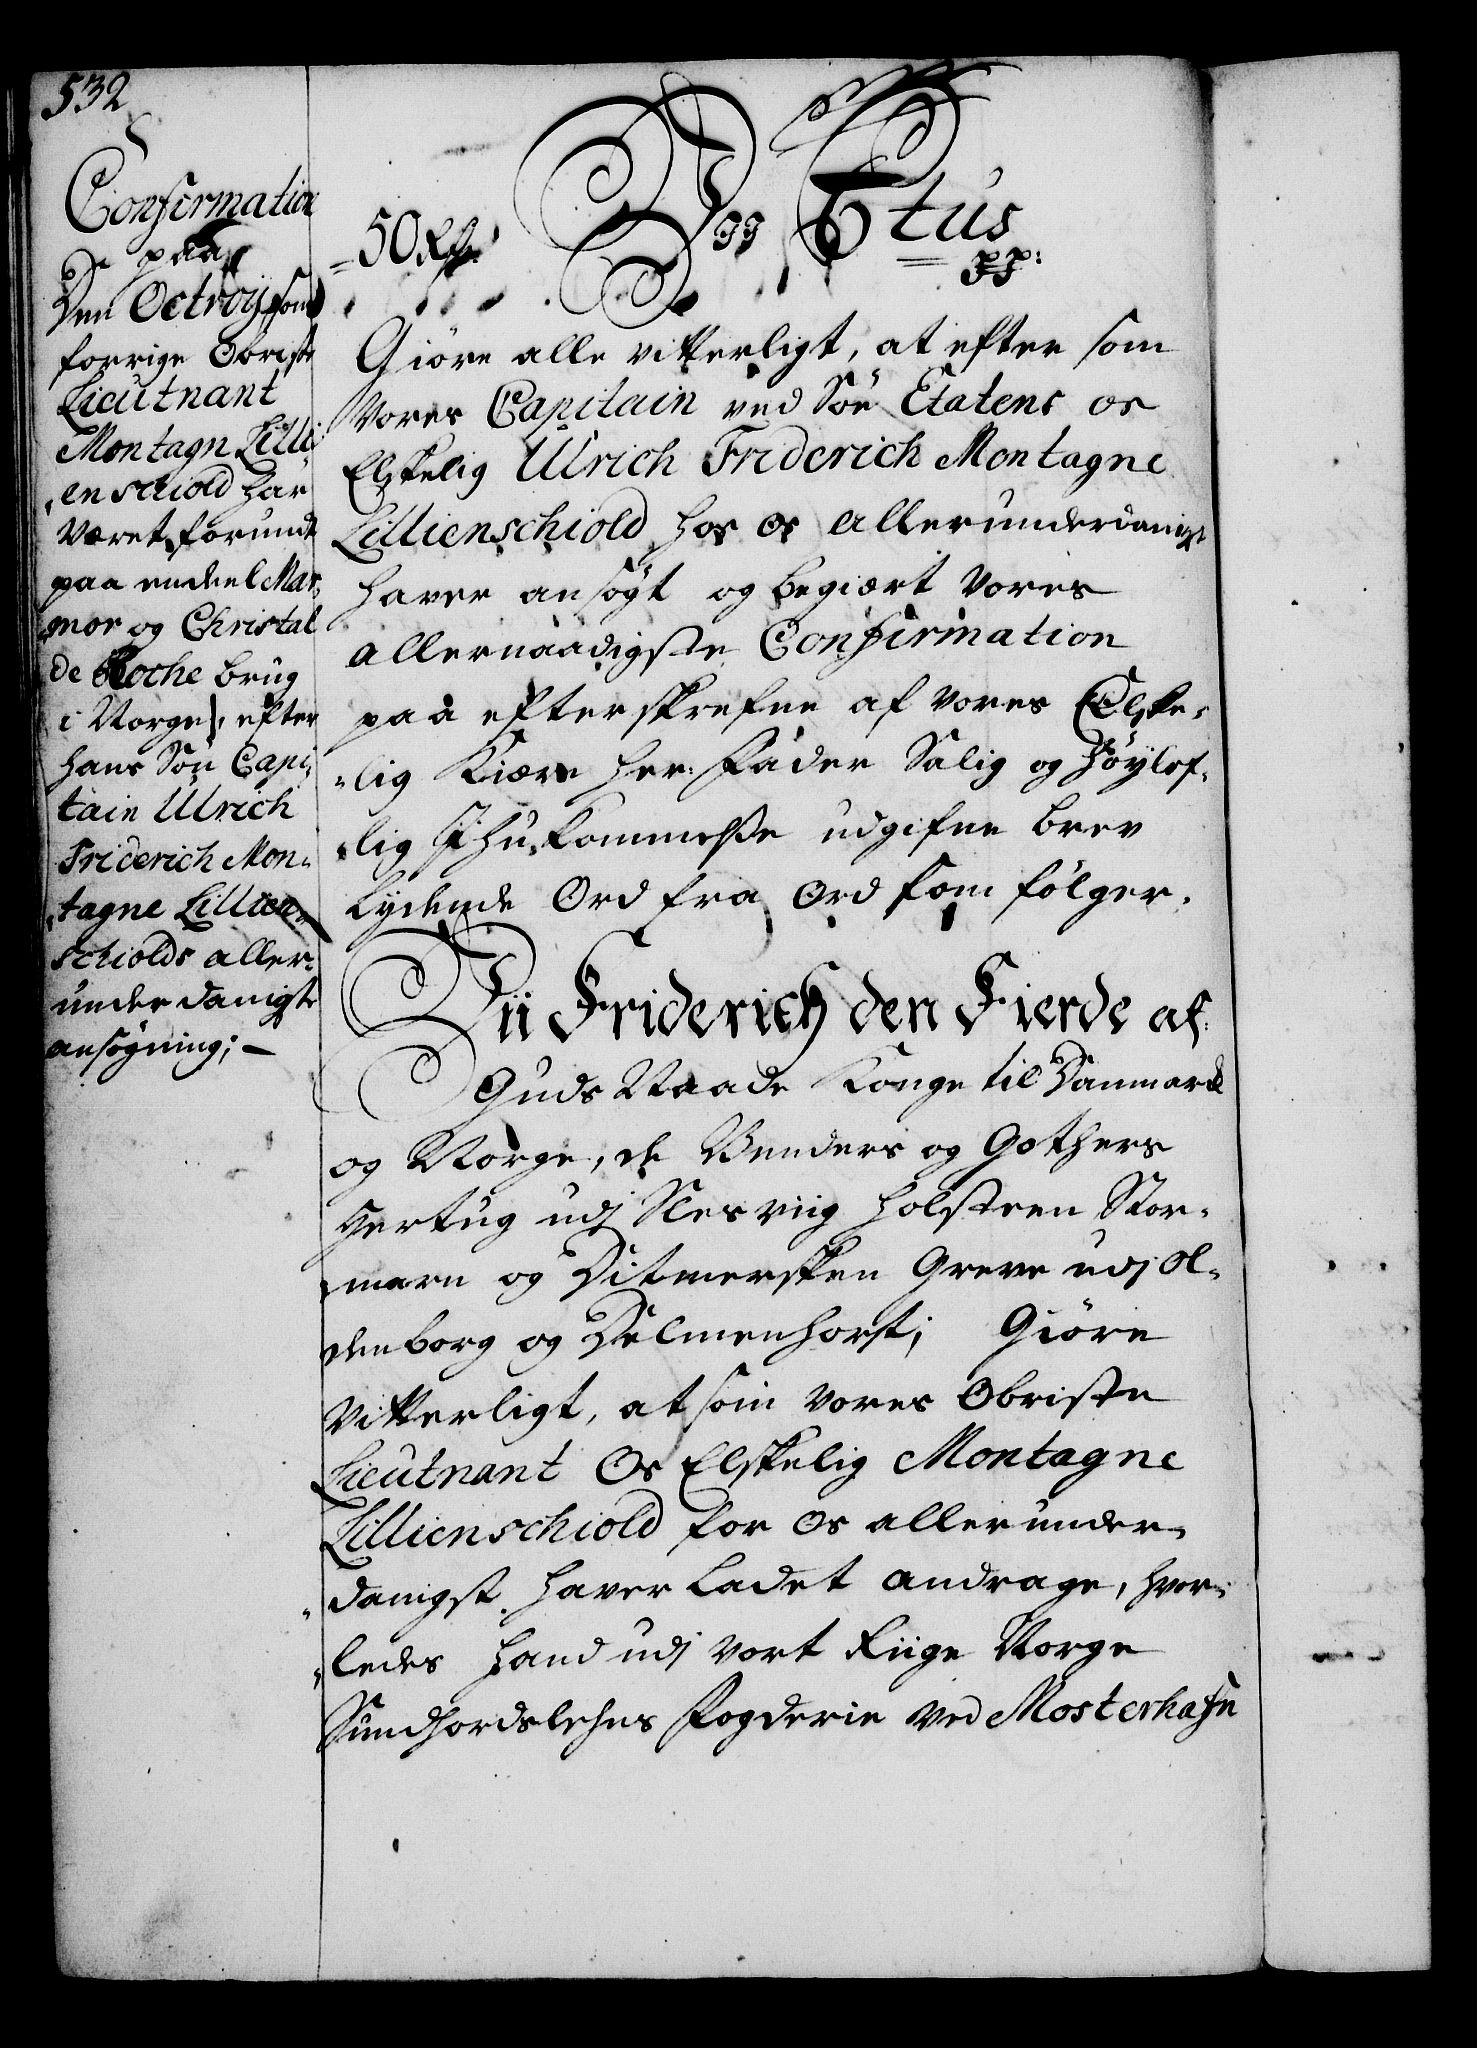 532
Confirmation
paa
Den Octroij som
forrige Obriste
Lieutnant
Montagn Lilli
enschiold har
været forundt
paa endeel Mar,
mor og Christal
de Roche brug
i Norge, efter
hans Søn Capi,
tain Ulrich
Friderich Mon,
tagne Lillien,
schiolds aller,
underdanigste
ansøgning; —
50 Rdlr.
C 6tus
pp:
Giøre alle vitterligt, at efter som
Vores Capitain ved Søe Etatens os
Elskelig Ulrich Friderich Montagne
Lillienschiold hos os allerunderdanigst
haver ansøgt og begiært Vores
allernaadigste Confirmation
paa efterskrefne af Vores Elske,
lig Kiære Her: Fader Salig og Høylof,
lig Ihukommelse udgifne brev
lydende Ord fra Ord som følger.
Vii Friderich den Fierde af
Guds Naade Konge til Danmark
og Norge, de Venders og Gothers
Hertug udj Slesviig Holsteen Stor,
marn og Ditmersken Greve udj Ol,
denborg og Delmenhorst; Giøre
Vitterligt, at som Vores Obriste
Lieutnant Os Elskelig Montagne
Lillienschiold for Os allerunder,
danigst haver ladet andrage, hvor,
ledes hand udj Vort Riige Norge
Sundhordslehns Fogderie ved Mosterhafn